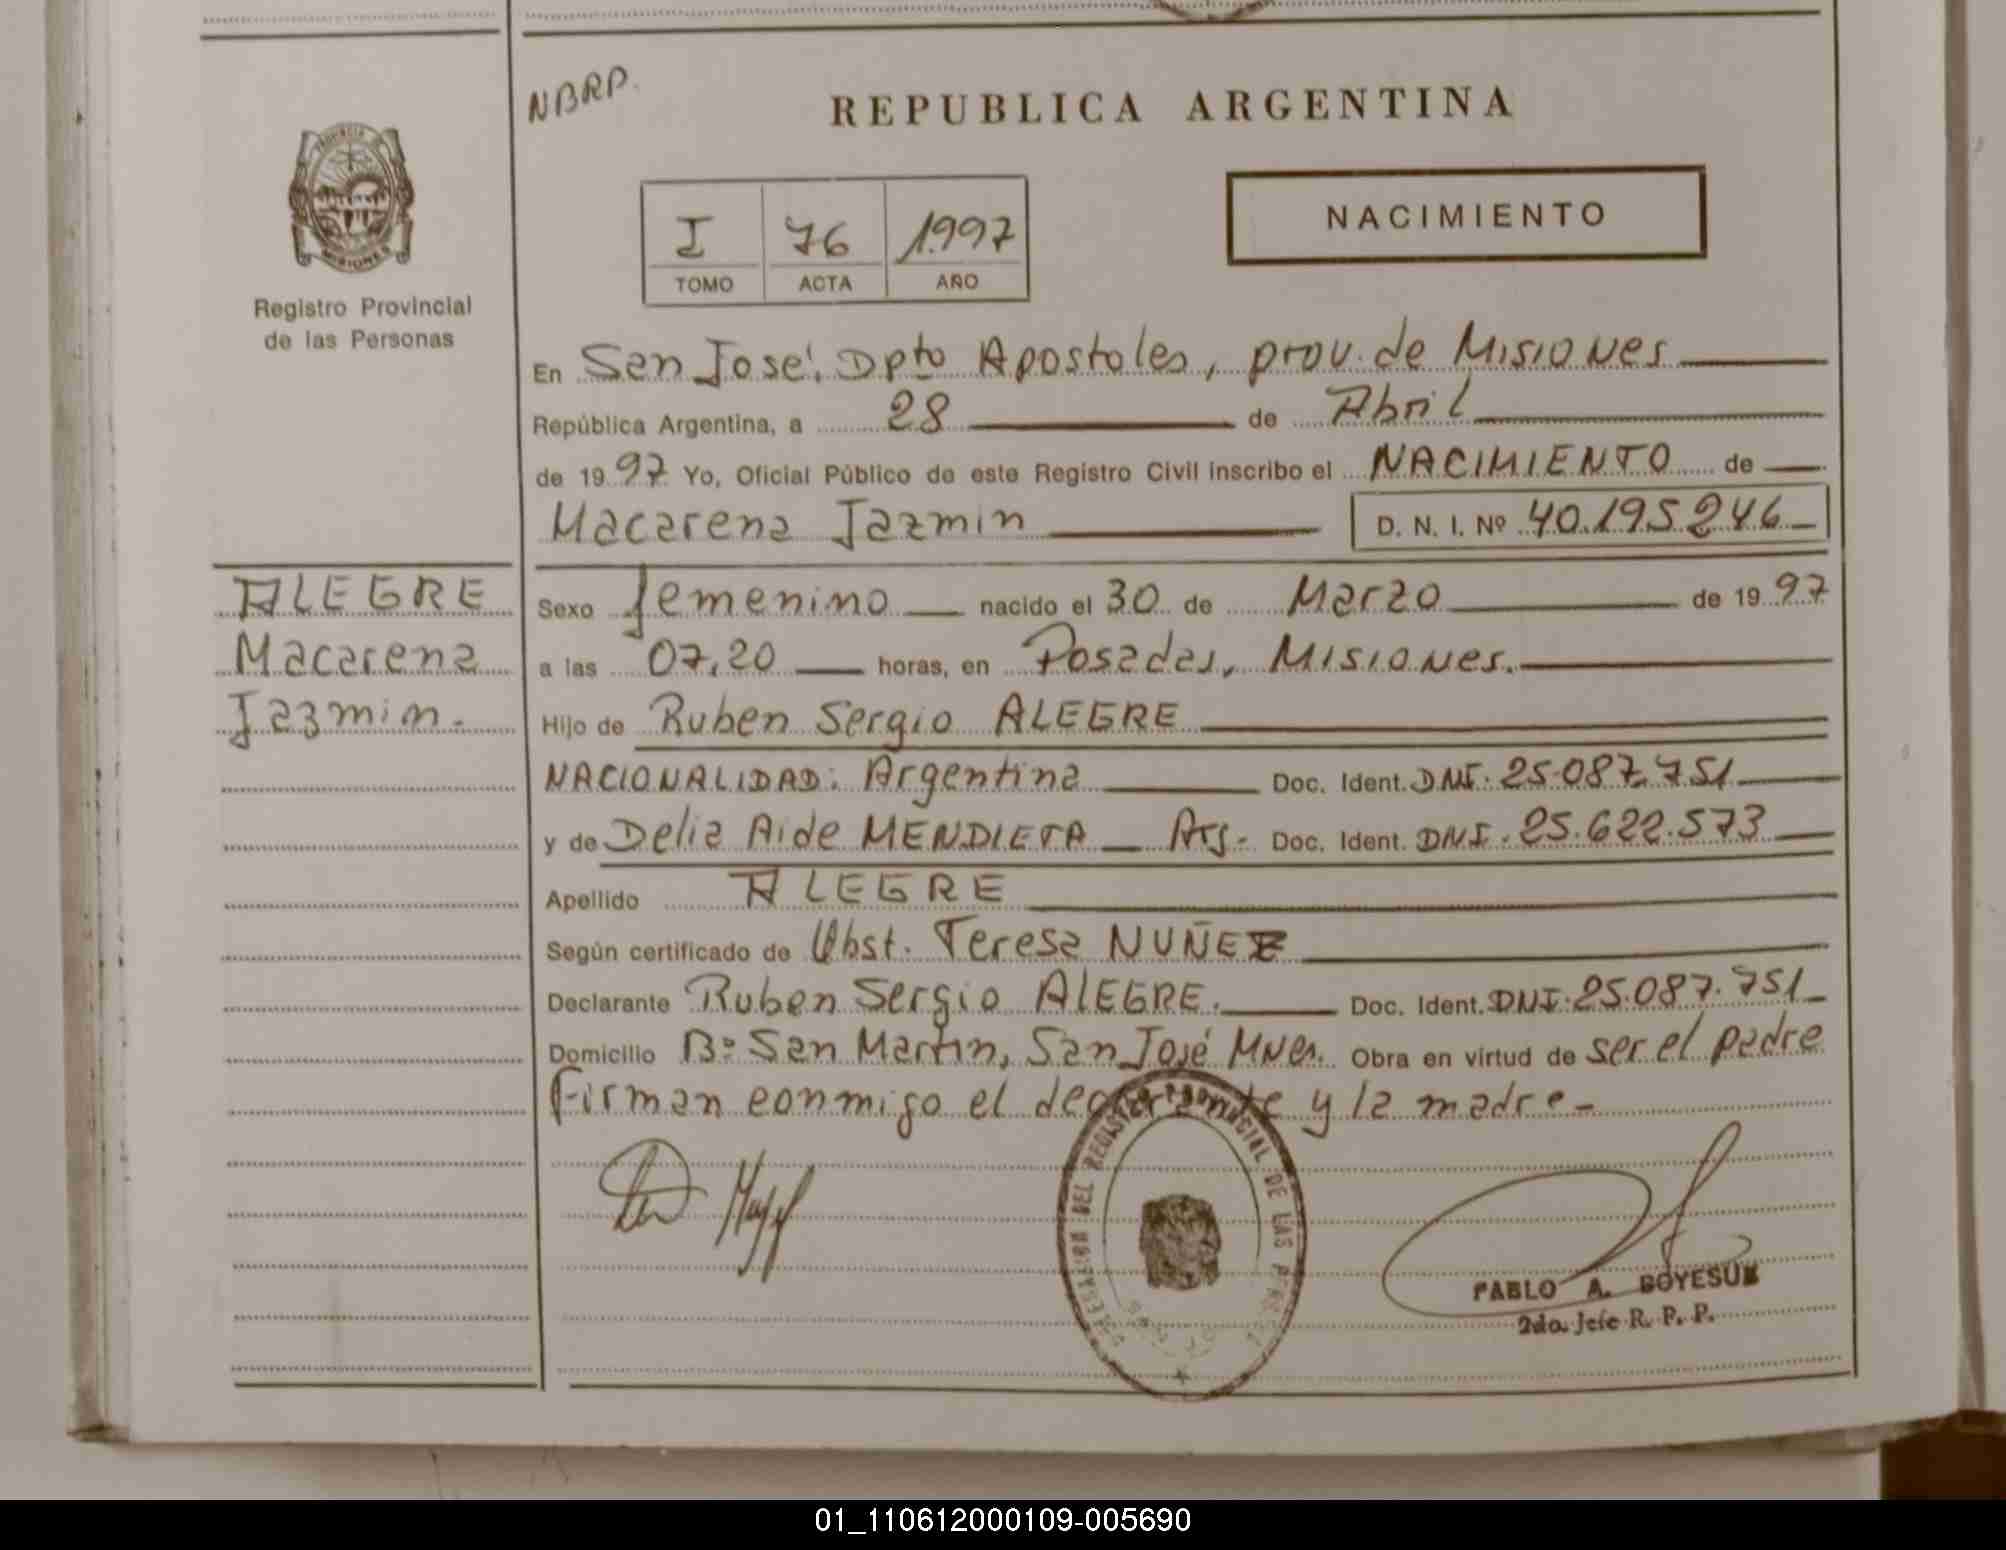 NBRP.
REPUBLICA ARGENTINA
PROVINCIA
MISIONES
Registro Provincial
de las Personas
I 76 1997
TOMO ACTA AÑO
NACIMIENTO
En San José. Dpto Apostoles, prov. de Misiones
República Argentina, a 28 de Abril
de 1997 Yo, Oficial Público de este Registro Civil inscribo el NACIMIENTO de
Macarena Jazmin D. N. I. Nº 40.195.246
ALEGRE
Macarena
Jazmin.
Sexo femenino nacido el 30 de Marzo de 1997
a las 07,20 horas, en Posadas, Misiones.
Hijo de Ruben Sergio ALEGRE
NACIONALIDAD: Argentina Doc. Ident. DNI. 25.087.751
y de Delia Aide MENDIETA Arg. Doc. Ident. DNI. 25.622.573
Apellido ALEGRE
Según certificado de Obst. Teresa NUÑEZ
Declarante Ruben Sergio ALEGRE. Doc. Ident. DNI. 25.087.751
Domicilio Bº San Martin, San José Mnes. Obra en virtud de ser el padre
Firman conmigo el declarante y la madre
DEL REGISTRO PROVINCIAL DE LAS
PABLO A. BOYESUK
2do. Jefe R. P. P.
01_110612000109-005690